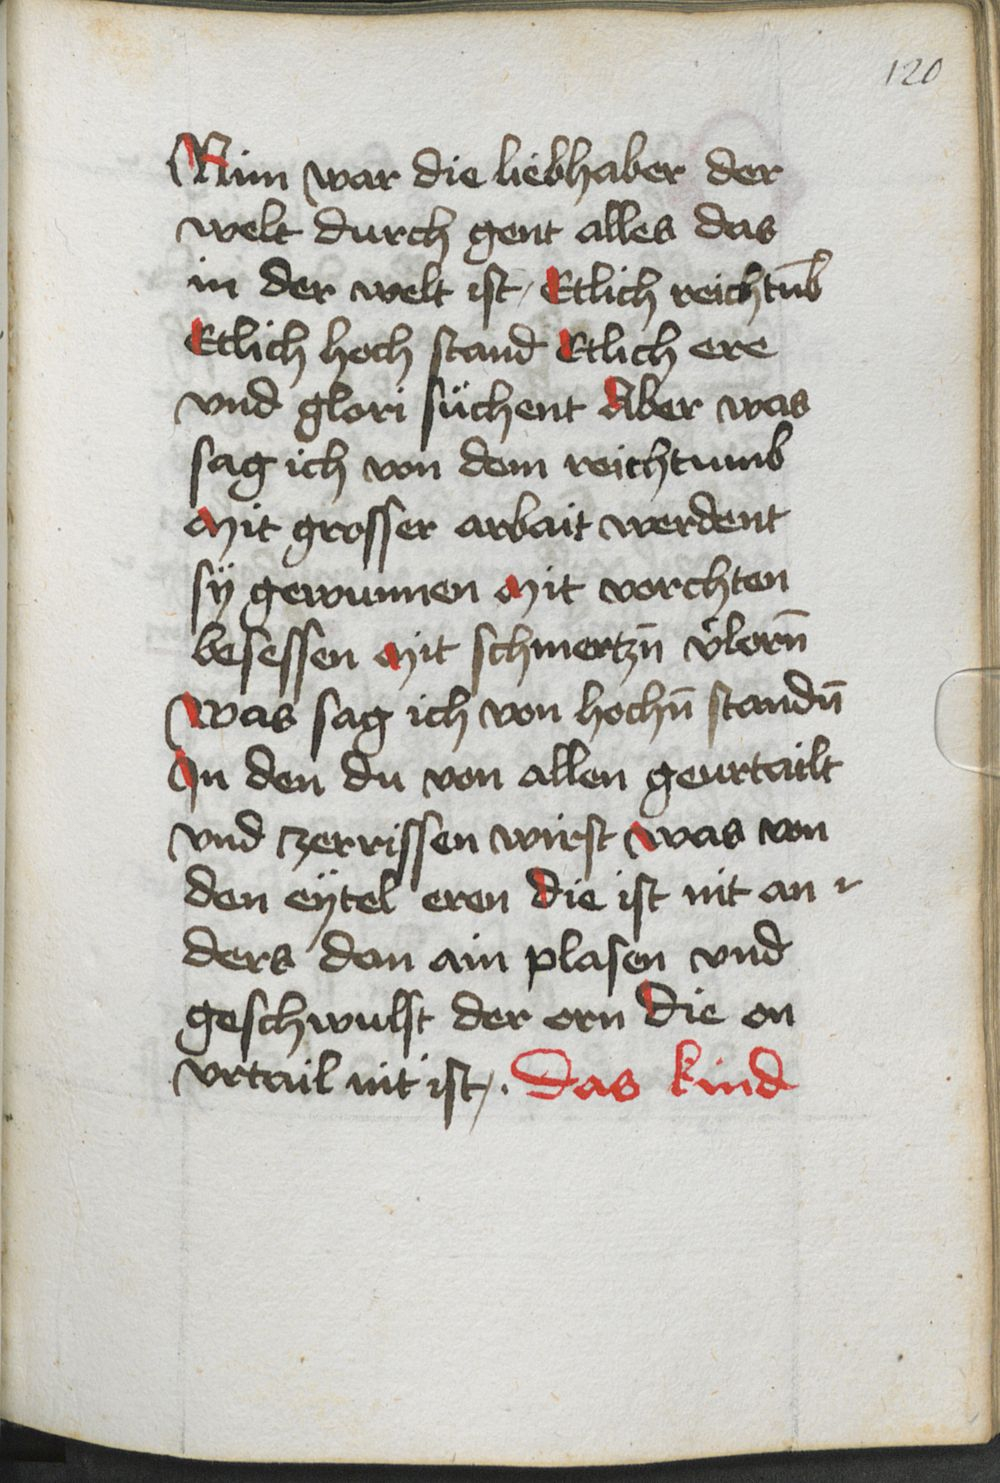 120
Nim war die liebhaber der
welt durch gent alles das
in der welt ist / Etlich reichtūb
Etlich hoch stand Etlich ere
vnd glori süchent Aber was
sag ich von dem reichtumb
Mit grosser arbait werdent
sÿ gewunnen Mit vorchten
besessen Mit schmertzn̄ v̾lorn̄
Was sag ich von hochn̄ standn̄
In den du von allen geurtailt
vnd zerrissen wirst Was von
den eÿtel eren Die ist nit an
ders dan ain plasen vnd
geschwulst der orn Die on
vrtail nit ist /. Das kind